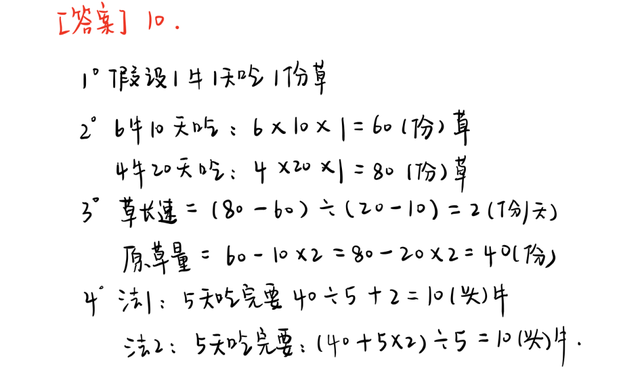 [答案] 10.
1° 假设1牛1天吃1份草
2° 6牛10天吃：6×10×1=60(份)草
4牛20天吃：4×20×1=80(份)草
3° 草长速=(80-60)÷(20-10)=2(份/天)
原草量=60-10×2=80-20×2=40(份)
4° 法1：5天吃完要40÷5+2=10(头)牛
法2：5天吃完要：(40+5×2)÷5=10(头)牛.